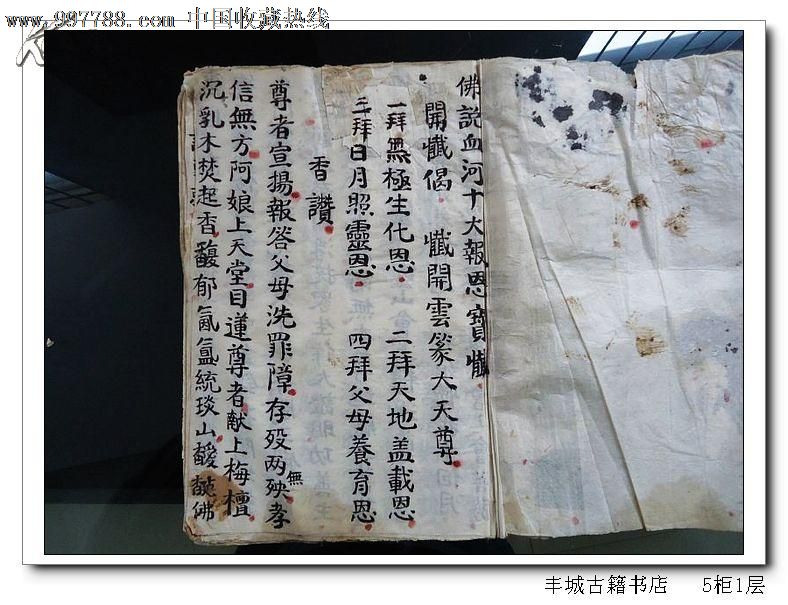 www.997788.com 中国收藏热线
佛説血河十大報恩寳懺
開懺偈 懺開雲篆大天尊
一拜無極生化恩 二拜天地盖載恩
三拜日月照靈恩 四拜父母養育恩
香讚
尊者宣揚報答父母洗罪障存殁两無殃孝
信無方阿娘上天堂目蓮尊者献上梅檀
沉乳木焚起香馥郁氤氲統琰山靉靆佛
丰城古籍书店 5柜1层